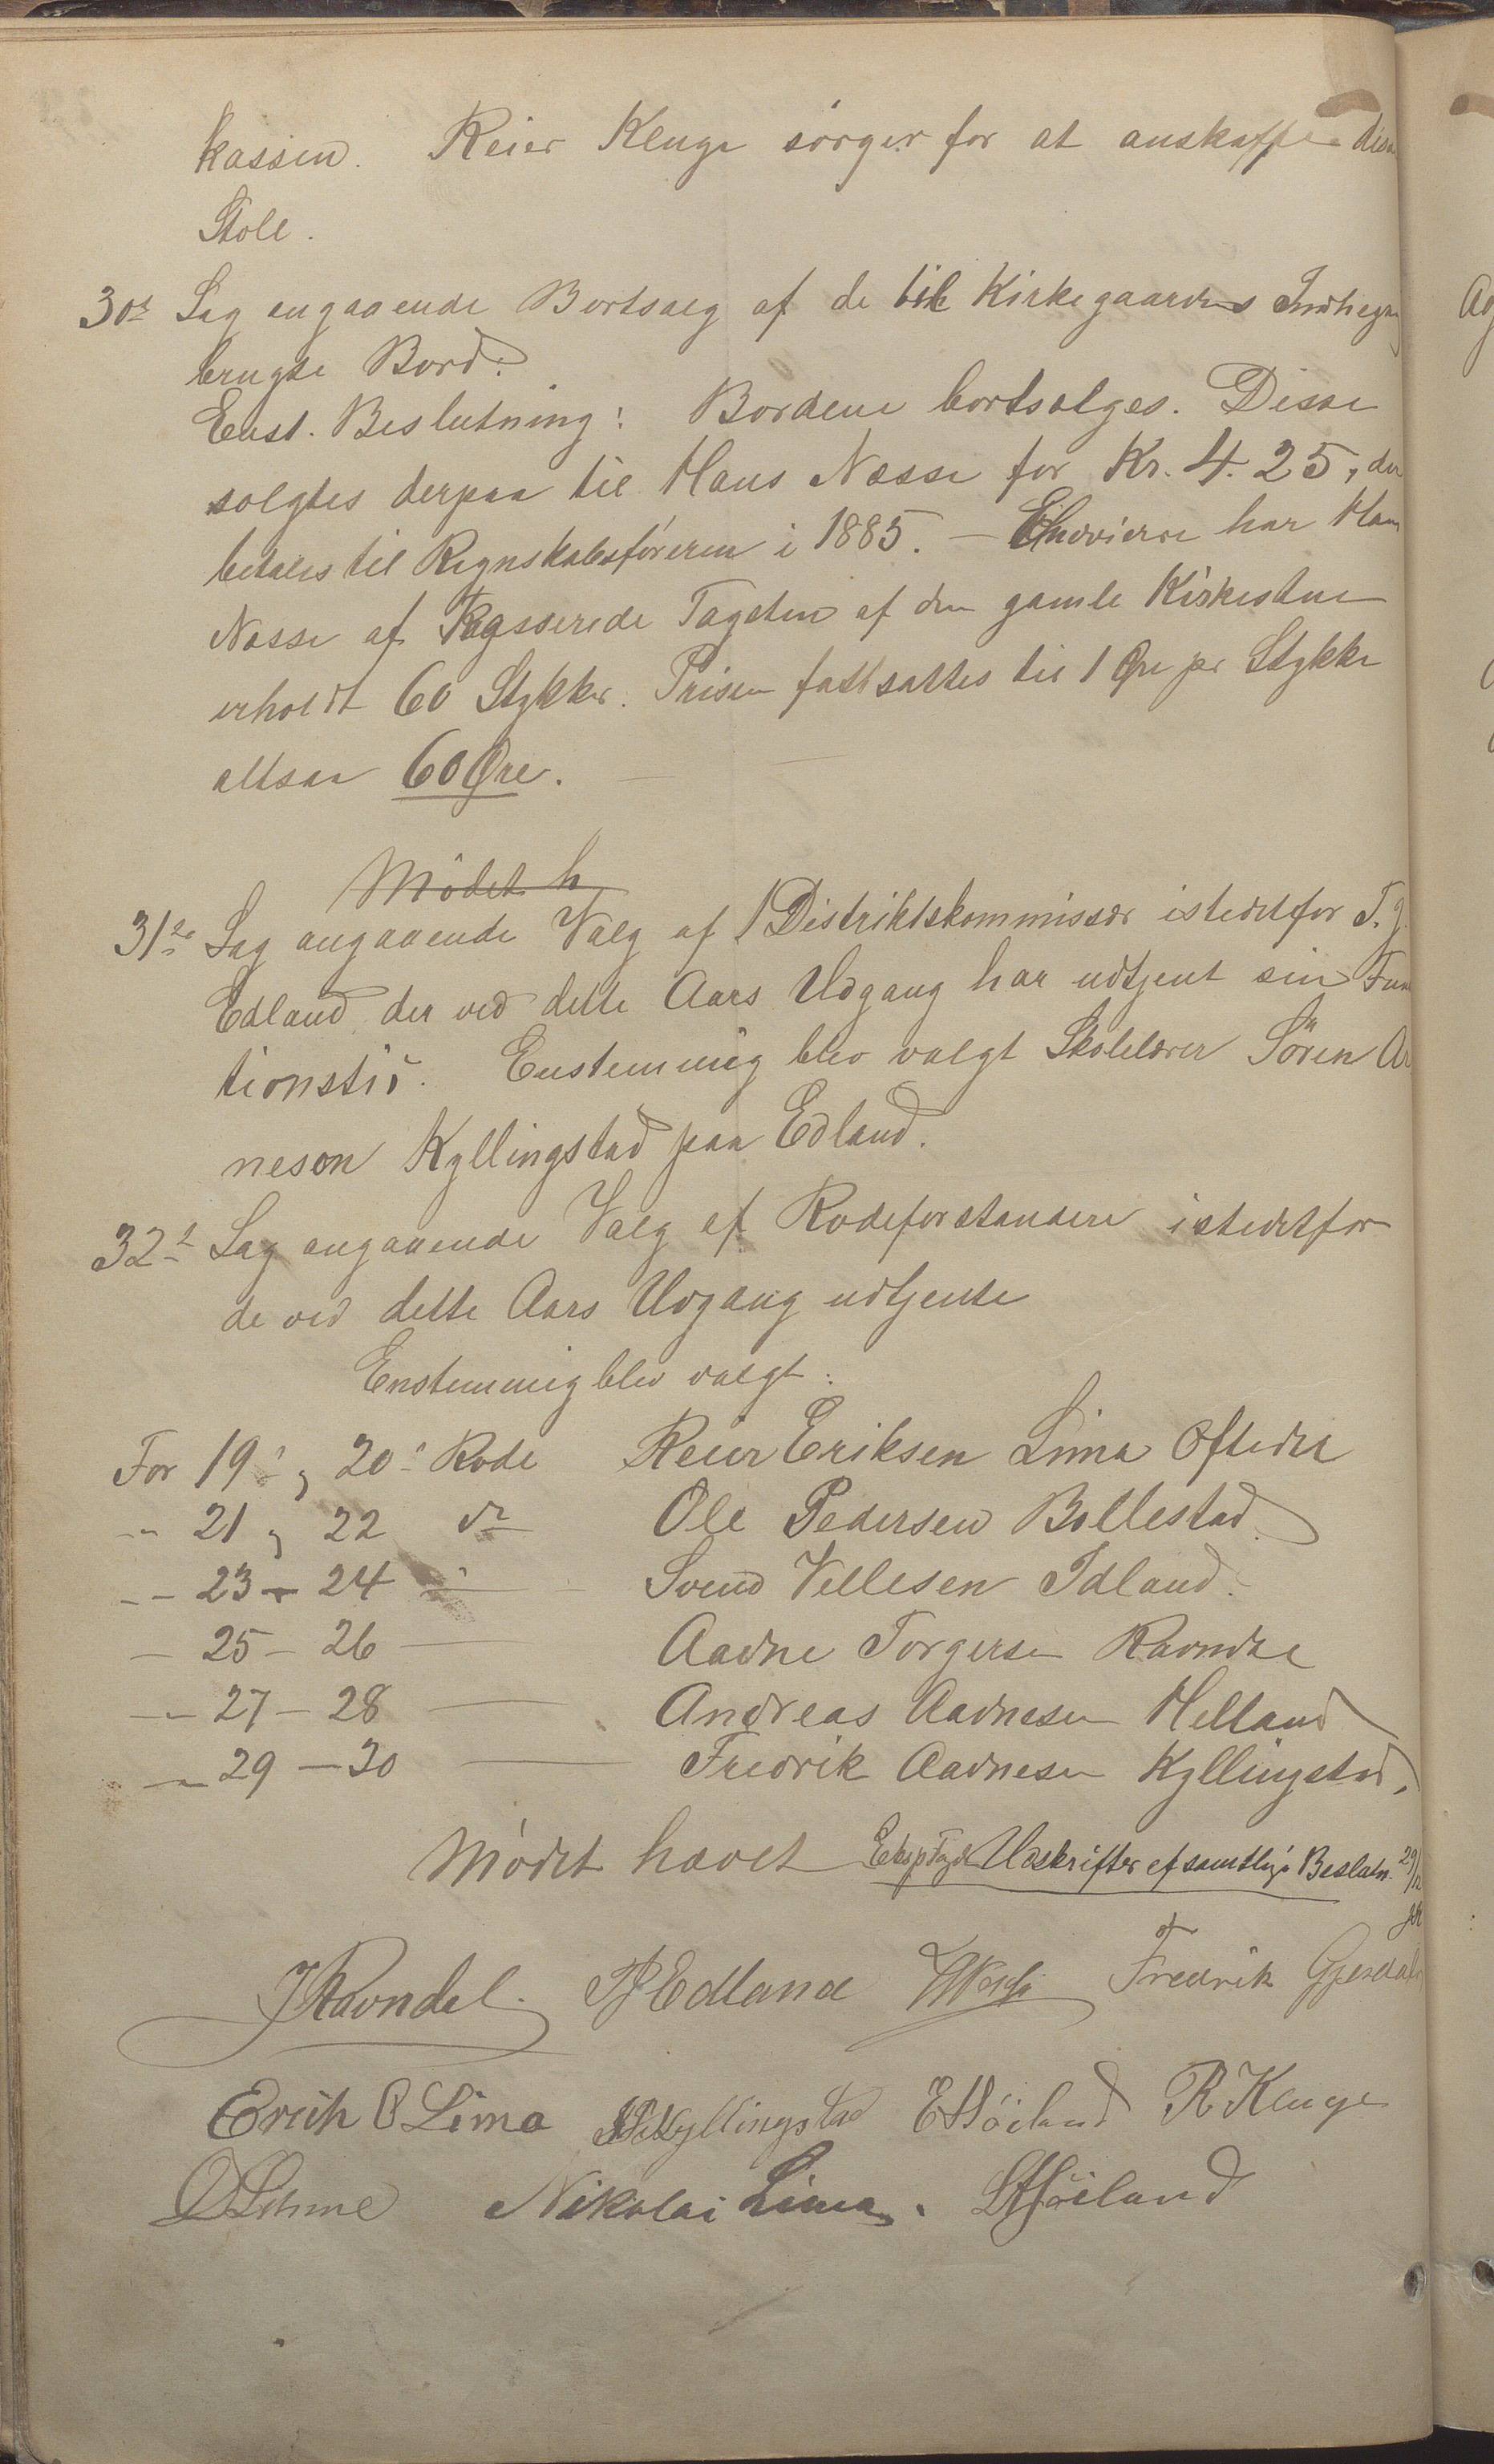 kassen. Reier Kluge sørger for at anskaffe disse
Stole.
30te Sag angaaende Bortsalg af de til Kirkegaardens Indhegn
brugte Bord.
Enst. Beslutning: Bordene bortsælges. Disse
solgtes derpaa til Hans Næsse for Kr. 4.25, der
betales til Regnskabsføreren i 1885. – Endvidere har Hans
Næsse af kasserede Tagsten af den gamle Kirkestue
erholdt 60 Stykker. Prisen fastsattes til 1 Øre pr Stykke
altsaa 60 Øre.
Mödet h
31te Sag angaaende Valg af 1 Distriktskommissær istedetfor T. J.
Edland der ved dette Aars Udgang har udtjent sin Funk
tionstid. Enstemmig blev valgt Skolelærer Sören Ad
neson Kyllingstad paa Edland.
32te Sag angaaende Valg af Rodeforstandere istedetfor
de ved dette Aars Udgang udtjente
Enstemmig blev valgt:
For 19de, 20de Rode Reier Eriksen Lima Oftedal
-"- 21, 22 do Ole Pedersen Bollestad
-"- 23 - 24 - Svend Vellesen Idland.
- 25 - 26 - Aadne Torgersen Ravndal
-"- 27 - 28 - Andreas Aadnesen Helland
-"- 29 - 30 - Fredrik Aadnesen Kyllingstad.
Mödet hævet Udskrifter af samtlige Beslutn. 29/12
JRavndal. TJEdland Fredrik Gjesdal
Erich O Lima Kyllingstad EHöiland R Kluge
Nikolai Lima. Höiland